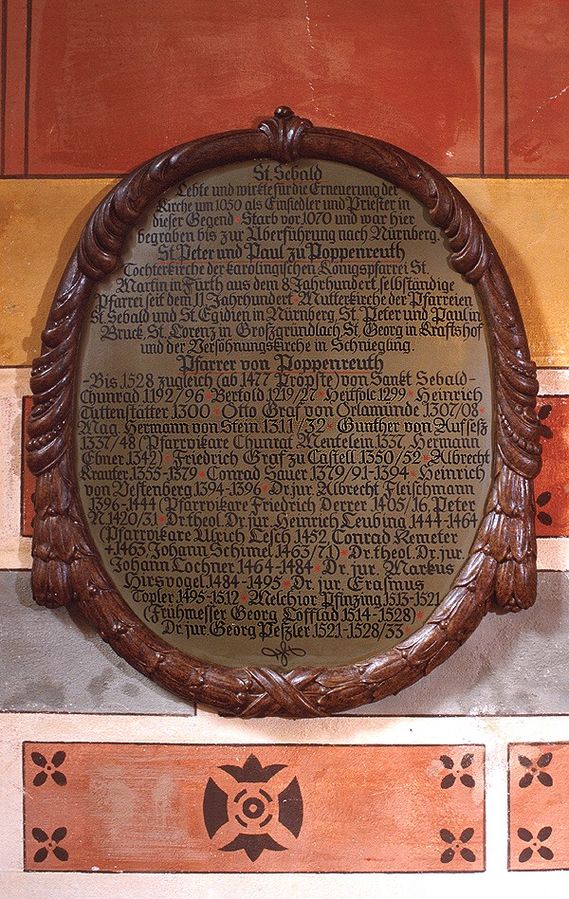 St. Sebald
Lebte und wirkte für die Erneuerung der
Kirche um 1050 als Einsiedler und Priester in
dieser Gegend * Starb vor 1070 und war hier
begraben bis zur Überführung nach Nürnberg.
St. Peter und Paul zu Poppenreuth
Tochterkirche der karolingischen Königspfarrei St.
Martin in Fürth aus dem 8. Jahrhundert, selbständige
Pfarrei seit dem 11. Jahrhundert * Mutterkirche der Pfarreien
St. Sebald und St. Egidien in Nürnberg, St. Peter und Paul in
Bruck, St. Lorenz in Großgründlach, St. Georg in Kraftshof
und der Versöhnungskirche in Schniegling.
Pfarrer von Poppenreuth
-Bis 1528 zugleich (ab 1477 Pröpste) von Sankt Sebald-
Chunrad 1192/96 * Bertold 1219/27 * Heitfolc 1299 * Heinrich
Tuttenstätter 1300 * Otto Graf von Orlamünde 1307/08
Mag. Hermann von Stein 1311/32 * Gunther von Aufseß
1337/48 (Pfarrvikare Chunrat Mentelein 1337, Hermann
Ebner 1342) * Friedrich Graf zu Castell 1350/52 * Albrecht
Krauter 1355-1379 * Conrad Sauer 1379/91-1394 * Heinrich
von Vestenberg 1394-1396 * Dr. jur. Albrecht Fleischmann
1396-1444 (Pfarrvikare Friedrich Derrer 1405/16, Peter
N. 1420/31) * Dr. theol. Dr. jur. Heinrich Leubing 1444-1464
(Pfarrvikare Ulrich Tesch 1452, Conrad Kemeter
+1463, Johann Schimel 1463/71) * Dr. theol. Dr. jur.
Johann Lochner 1464-1484 * Dr. jur. Markus
Hirsvogel 1484-1495 * Dr. jur. Erasmus
Topler 1495-1512 * Melchior Pfinzing 1513-1521
(Frühmesser Georg Löfflad 1514-1528) *
Dr. jur Georg Peßler 1521-1528/33